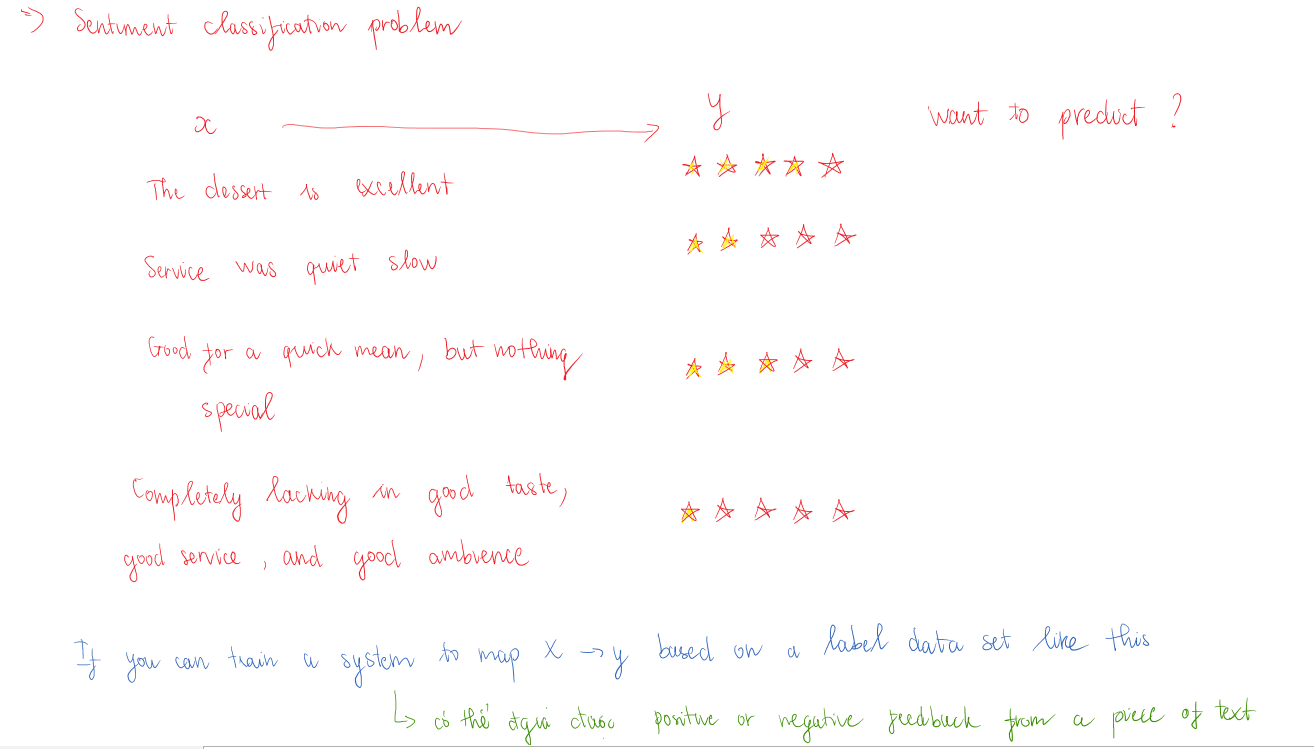 => Sentiment classification problem
x → y want to predict ?
The dessert is excellent
Service was quiet slow
Good for a quick mean, but nothing
special
Completely lacking in good taste,
good service, and good ambience
If you can train a system to map X → y based on a label data set like this
↳ có thể positive or negative feedback from a piece of text